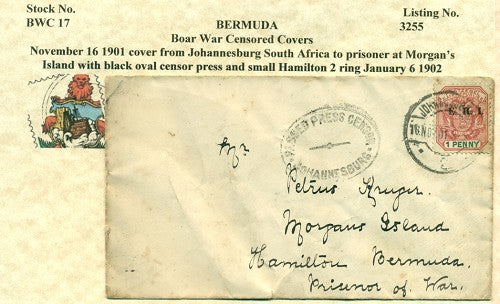 Stock No.
BWC 17
BERMUDA
Boar War Censored Covers
Listing No.
3255
November 16 1901 cover from Johannesburg South Africa to prisoner at Morgan's
Island with black oval censor press and small Hamilton 2 ring January 6 1902
PASSED PRESS CENSOR
JOHANNESBURG
JOHANN
16 NO
E.R.I.
1 PENNY
Mr.
Petrus Kruger.
Morgans Island
Hamilton Bermuda.
Prisenor of War.